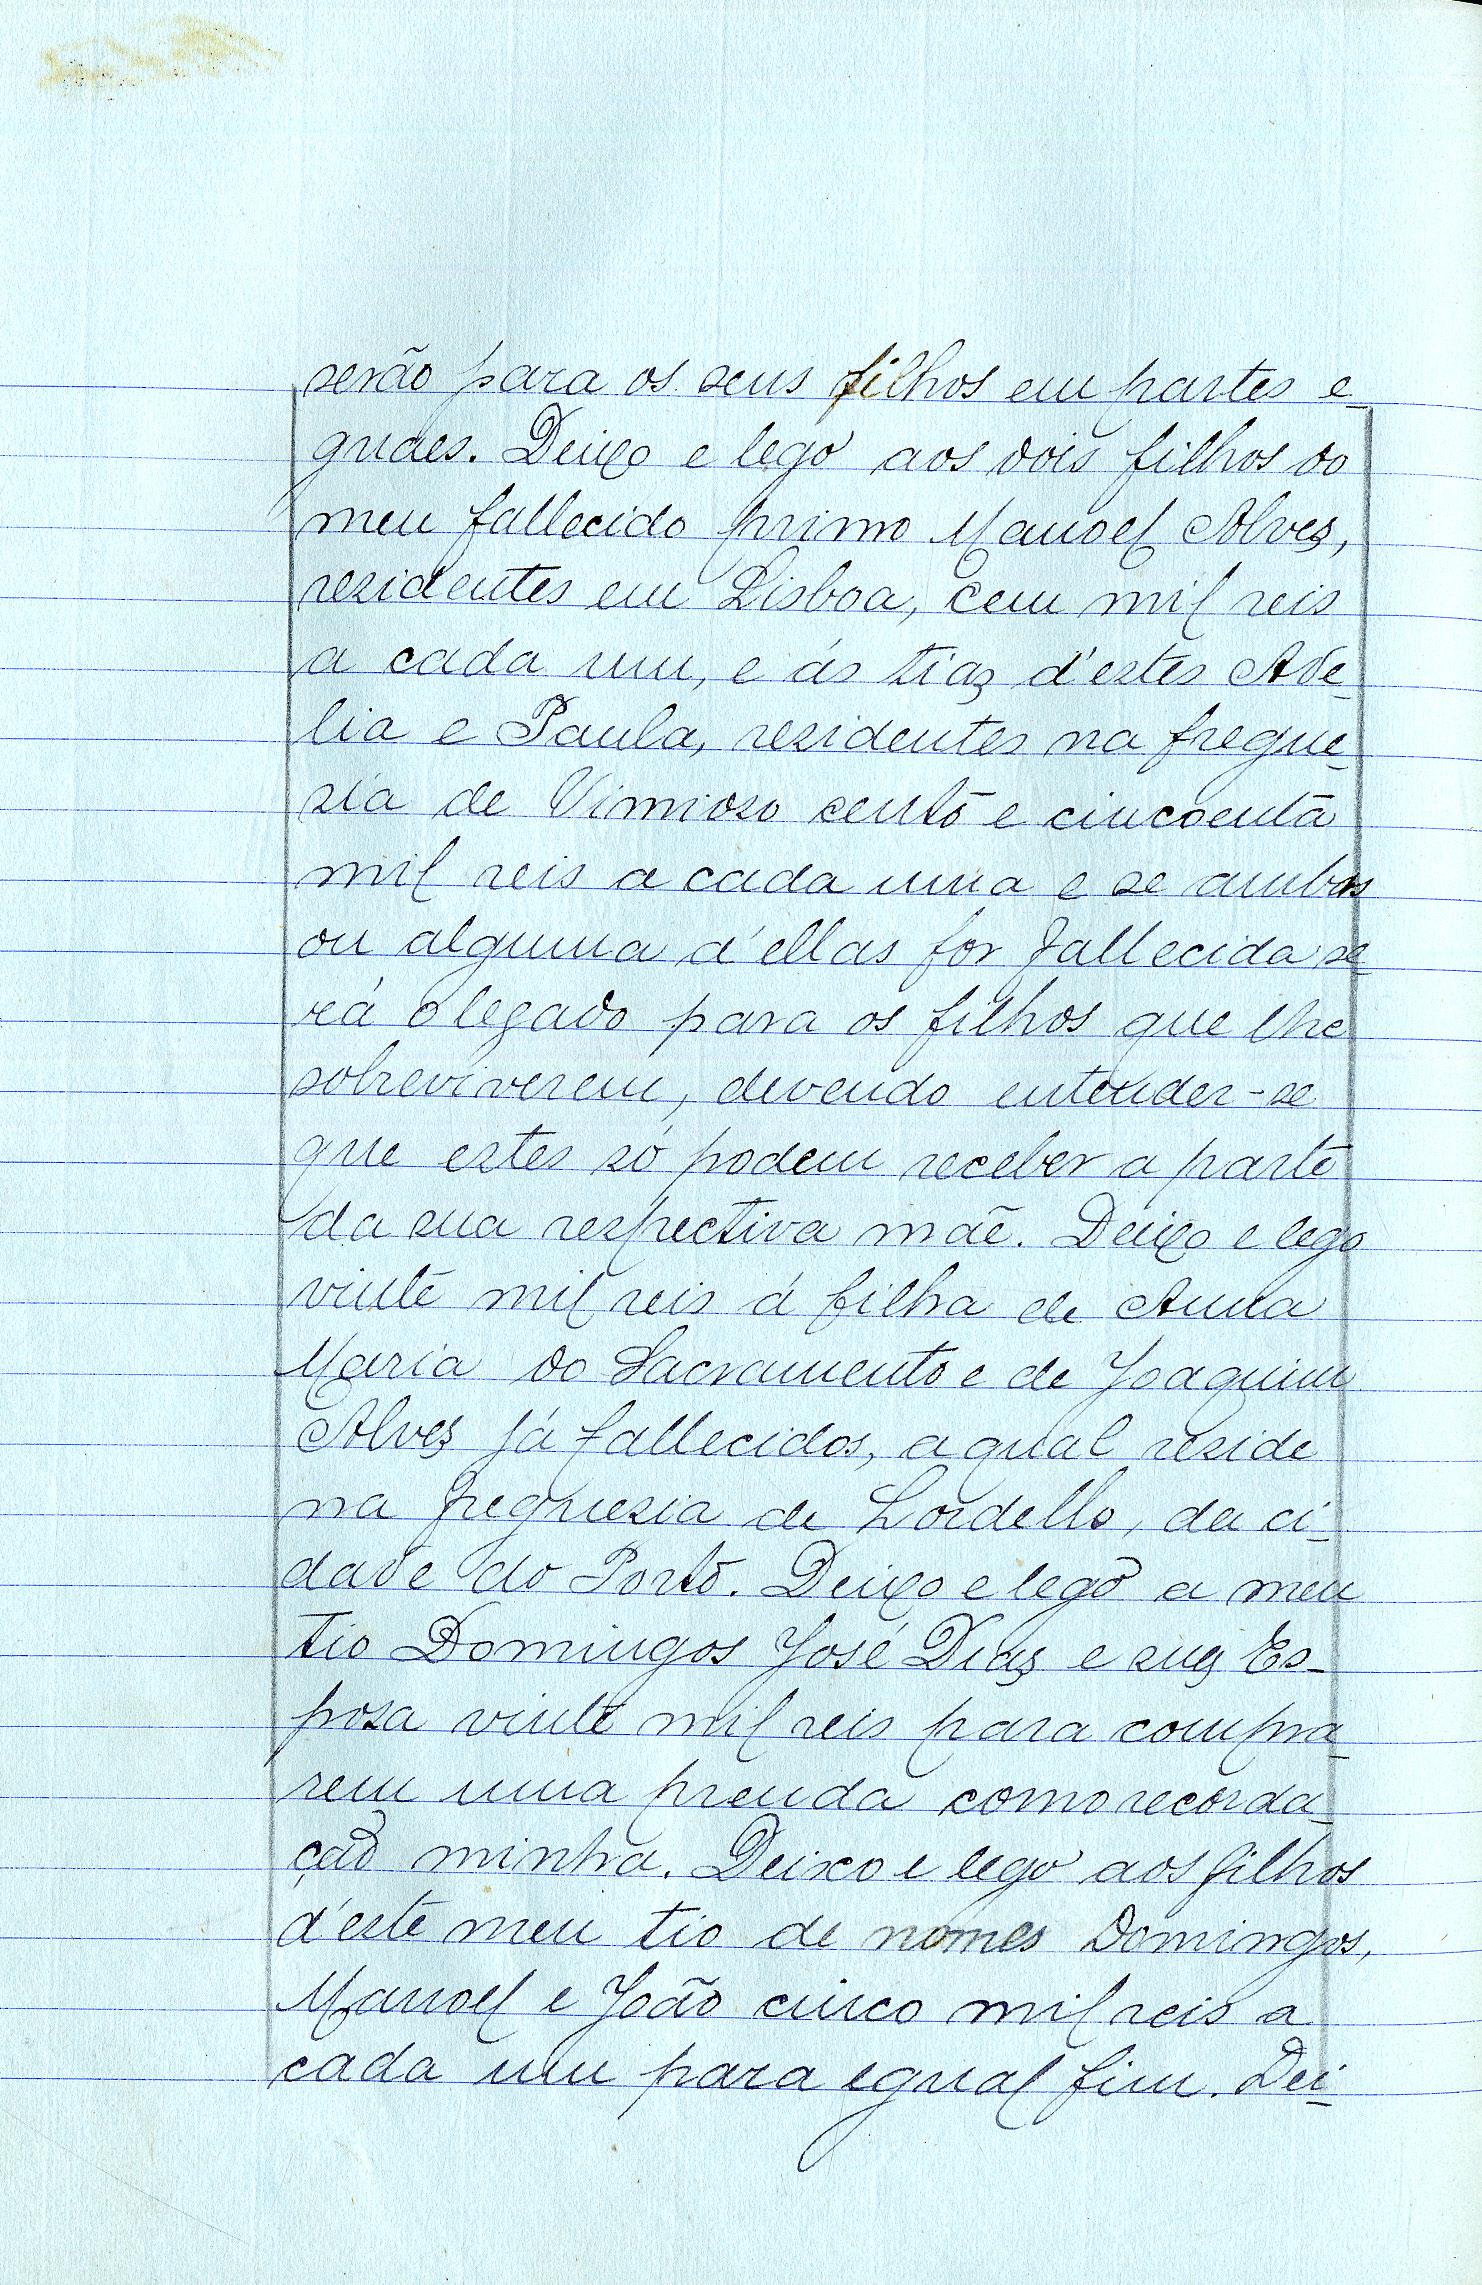 serão para os seus filhos em partes e-
guaes. Deixo e lego aos dois filhos do
meu fallecido primo Manoel Alves,
rezidentes em Lisboa, cem mil reis
a cada um, e ás tias d'estes Ade-
lia e Paula, rezidentes na fregue-
sia de Vimioso cento e cincoenta
mil reis a cada uma e se ambas
ou alguma d'ellas for fallecida se-
rá o legado para os filhos que lhe
sobreviverem, devendo entender-se
que estes só podem receber a parte
da sua respectiva mãe. Deixo e lego
vinte mil reis á filha de Anna
Maria do Sacramento e de Joaquim
Alves já fallecidos, a qual rezide
na freguesia de Lordello, da ci-
dade do Porto. Deixo e lego a meu
tio Domingos José Dias e sua Es-
posa vinte mil reis para compra-
rem uma prenda como recorda-
ção minha. Deixo e lego aos filhos
d'este meu tio de nomes Domingos,
Manoel e João cinco mil reis a
cada um para egual fim. Dei-